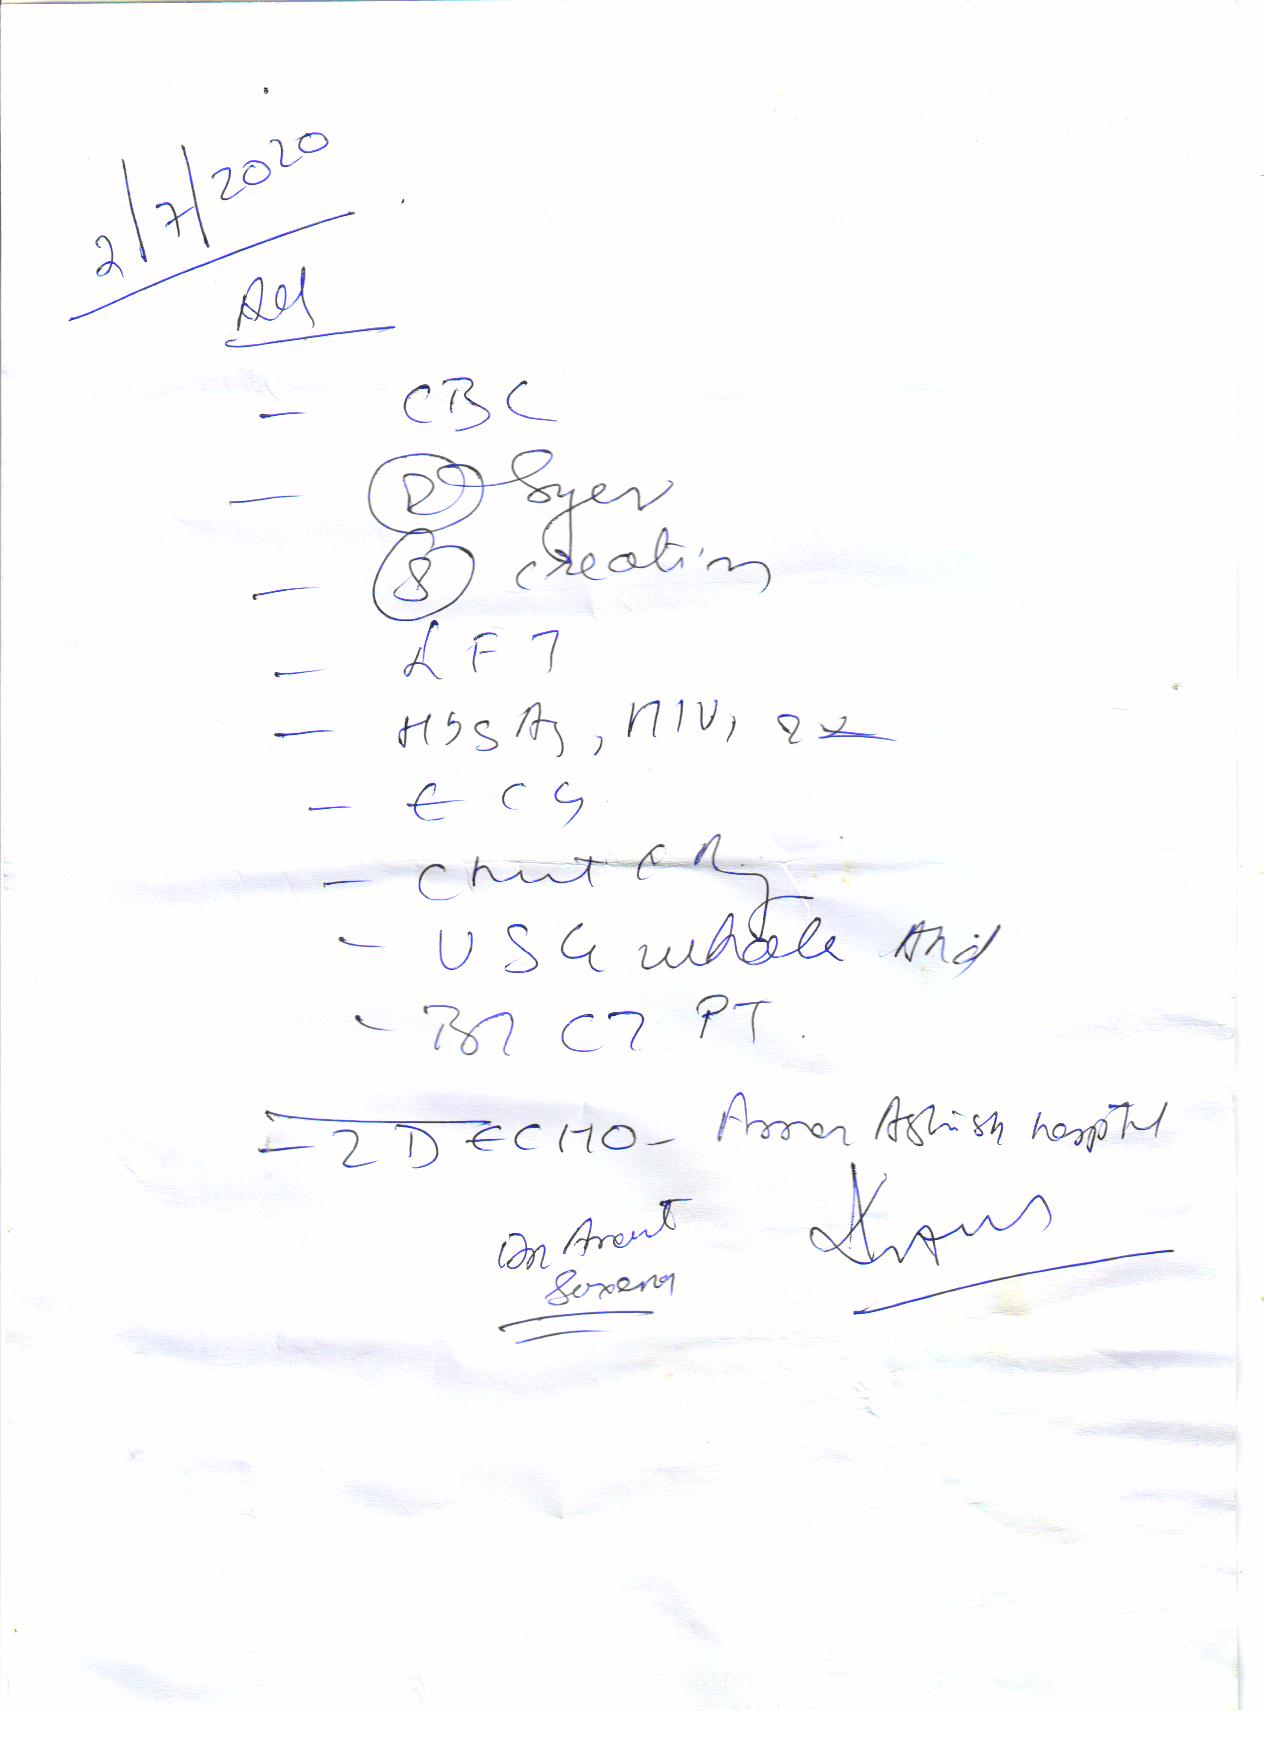 2/7/2020
Adv
- CBC
- (R) Sugar
- (S) creatinin
- LFT
- HbsAg, HIV,
- ECG
- Chest X Ray
- USG whole Abd
- BT CT PT.
- 2D ECHO - Ashish hospital
Dr Anant
Saxena